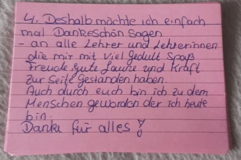 4. Deshalb möchte ich einfach
mal Dankeschön sagen
- an alle Lehrer und Lehrerinnen
die mir mit viel Gedult Spaß
Freude gute Laune und Kraft
zur Seite gestanden haben.
Auch durch euch bin ich zu dem
Menschen geworden der ich heute
bin.
Danke für alles!